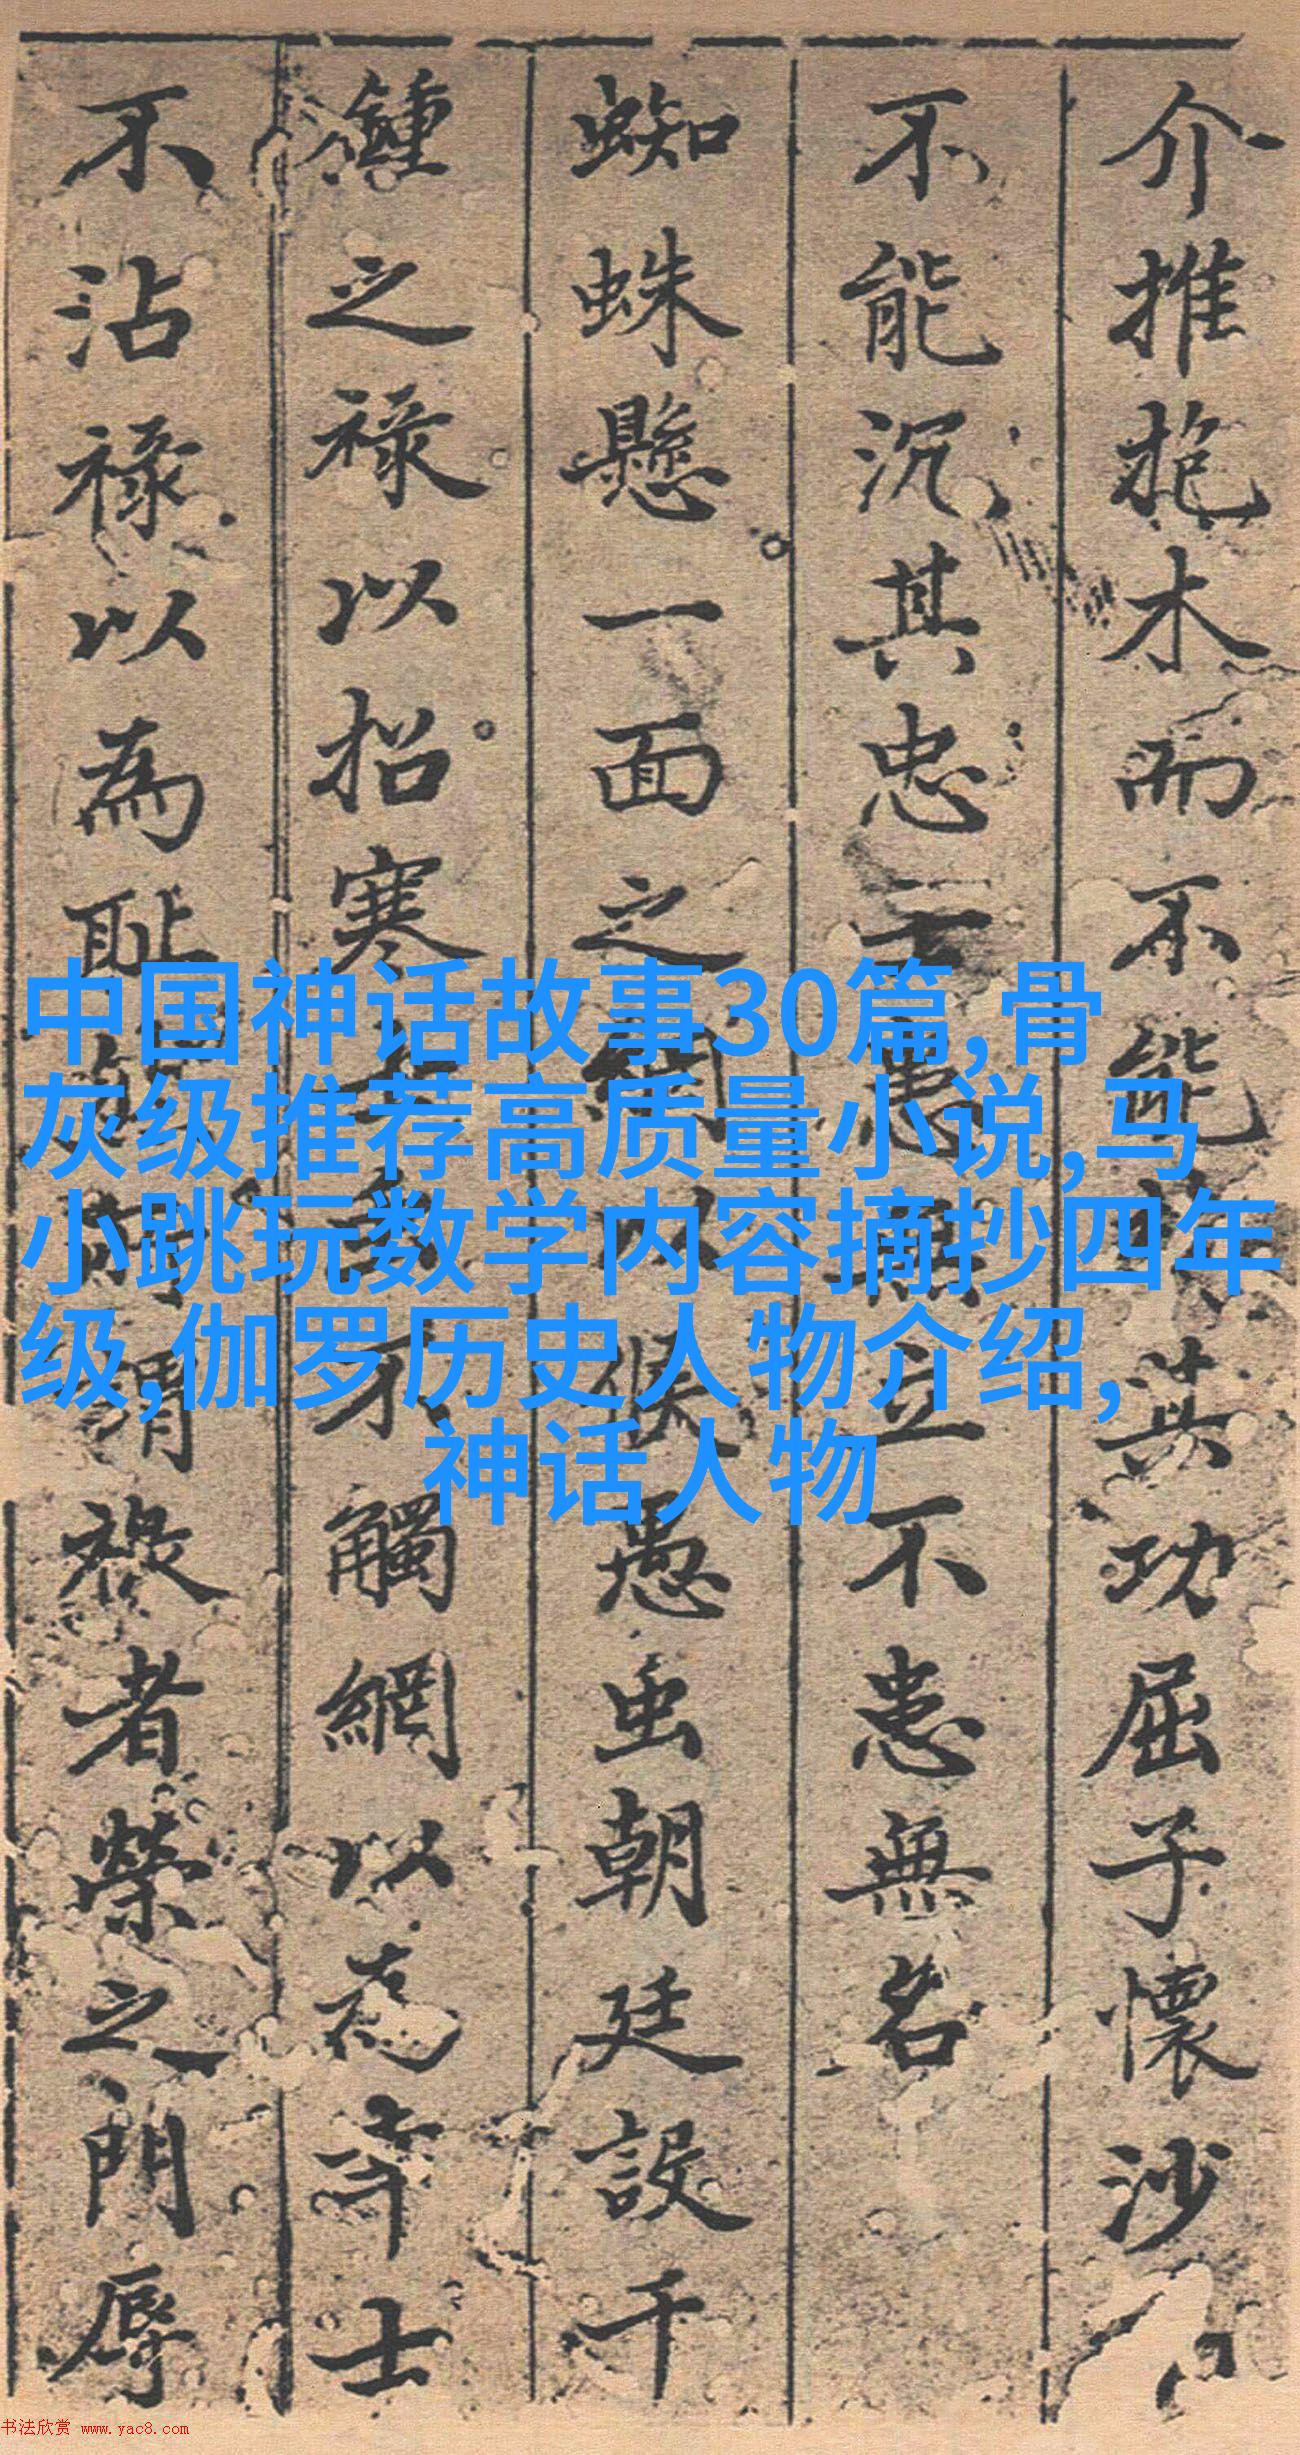 介推抱木而不能其功屈子懷沙
不能沉其忠士患無立不患無名
蜘蛛懸一面之網以候愚虫朝廷設千
鍾之祿以招寒不觸網以為士
不沾祿以為恥謂祿者榮之門辱
中国神话故事30篇,骨
灰级推荐高质量小说,马
小跳玩数学内容摘抄四年
级,伽罗历史人物介绍,
神话人物
书法欣赏 www.yac8.com